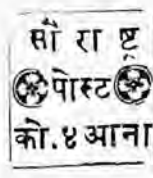 सौ રા ष्ट्र
पोस्ट
को. ४ आना